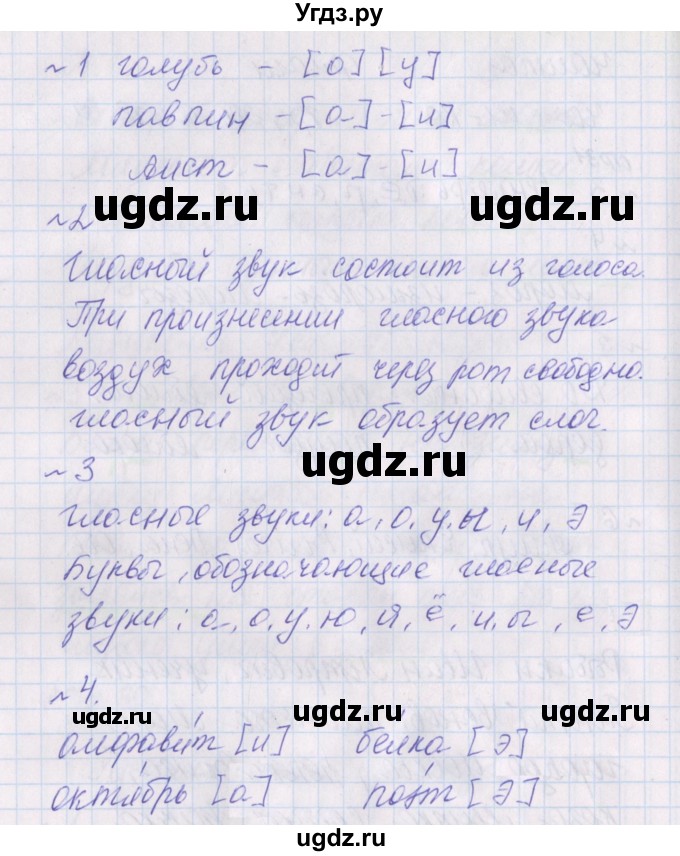 Угдз.ру
~1 голубь - [о] [у]
павлин - [а] - [и]
аист - [а] - [и]
ugdz.ru ugdz.ru
~2
Гласный звук состоит из голоса.
При произнесении гласного звука
воздух проходит через рот свободно.
гласный звук образует слог.
~3 ugdz.ru
гласные звуки: а, о, у, ы, и, э
Буквы, обозначающие гласные
звуки: а, о, у, ю, я, ё, и, ы, е, э
~4.
ugdz.ru ugdz.ru ugdz.ru
алфави́т [и] бе́лка [э]
октя́брь [а] поэ́т [э]
ugdz.ru